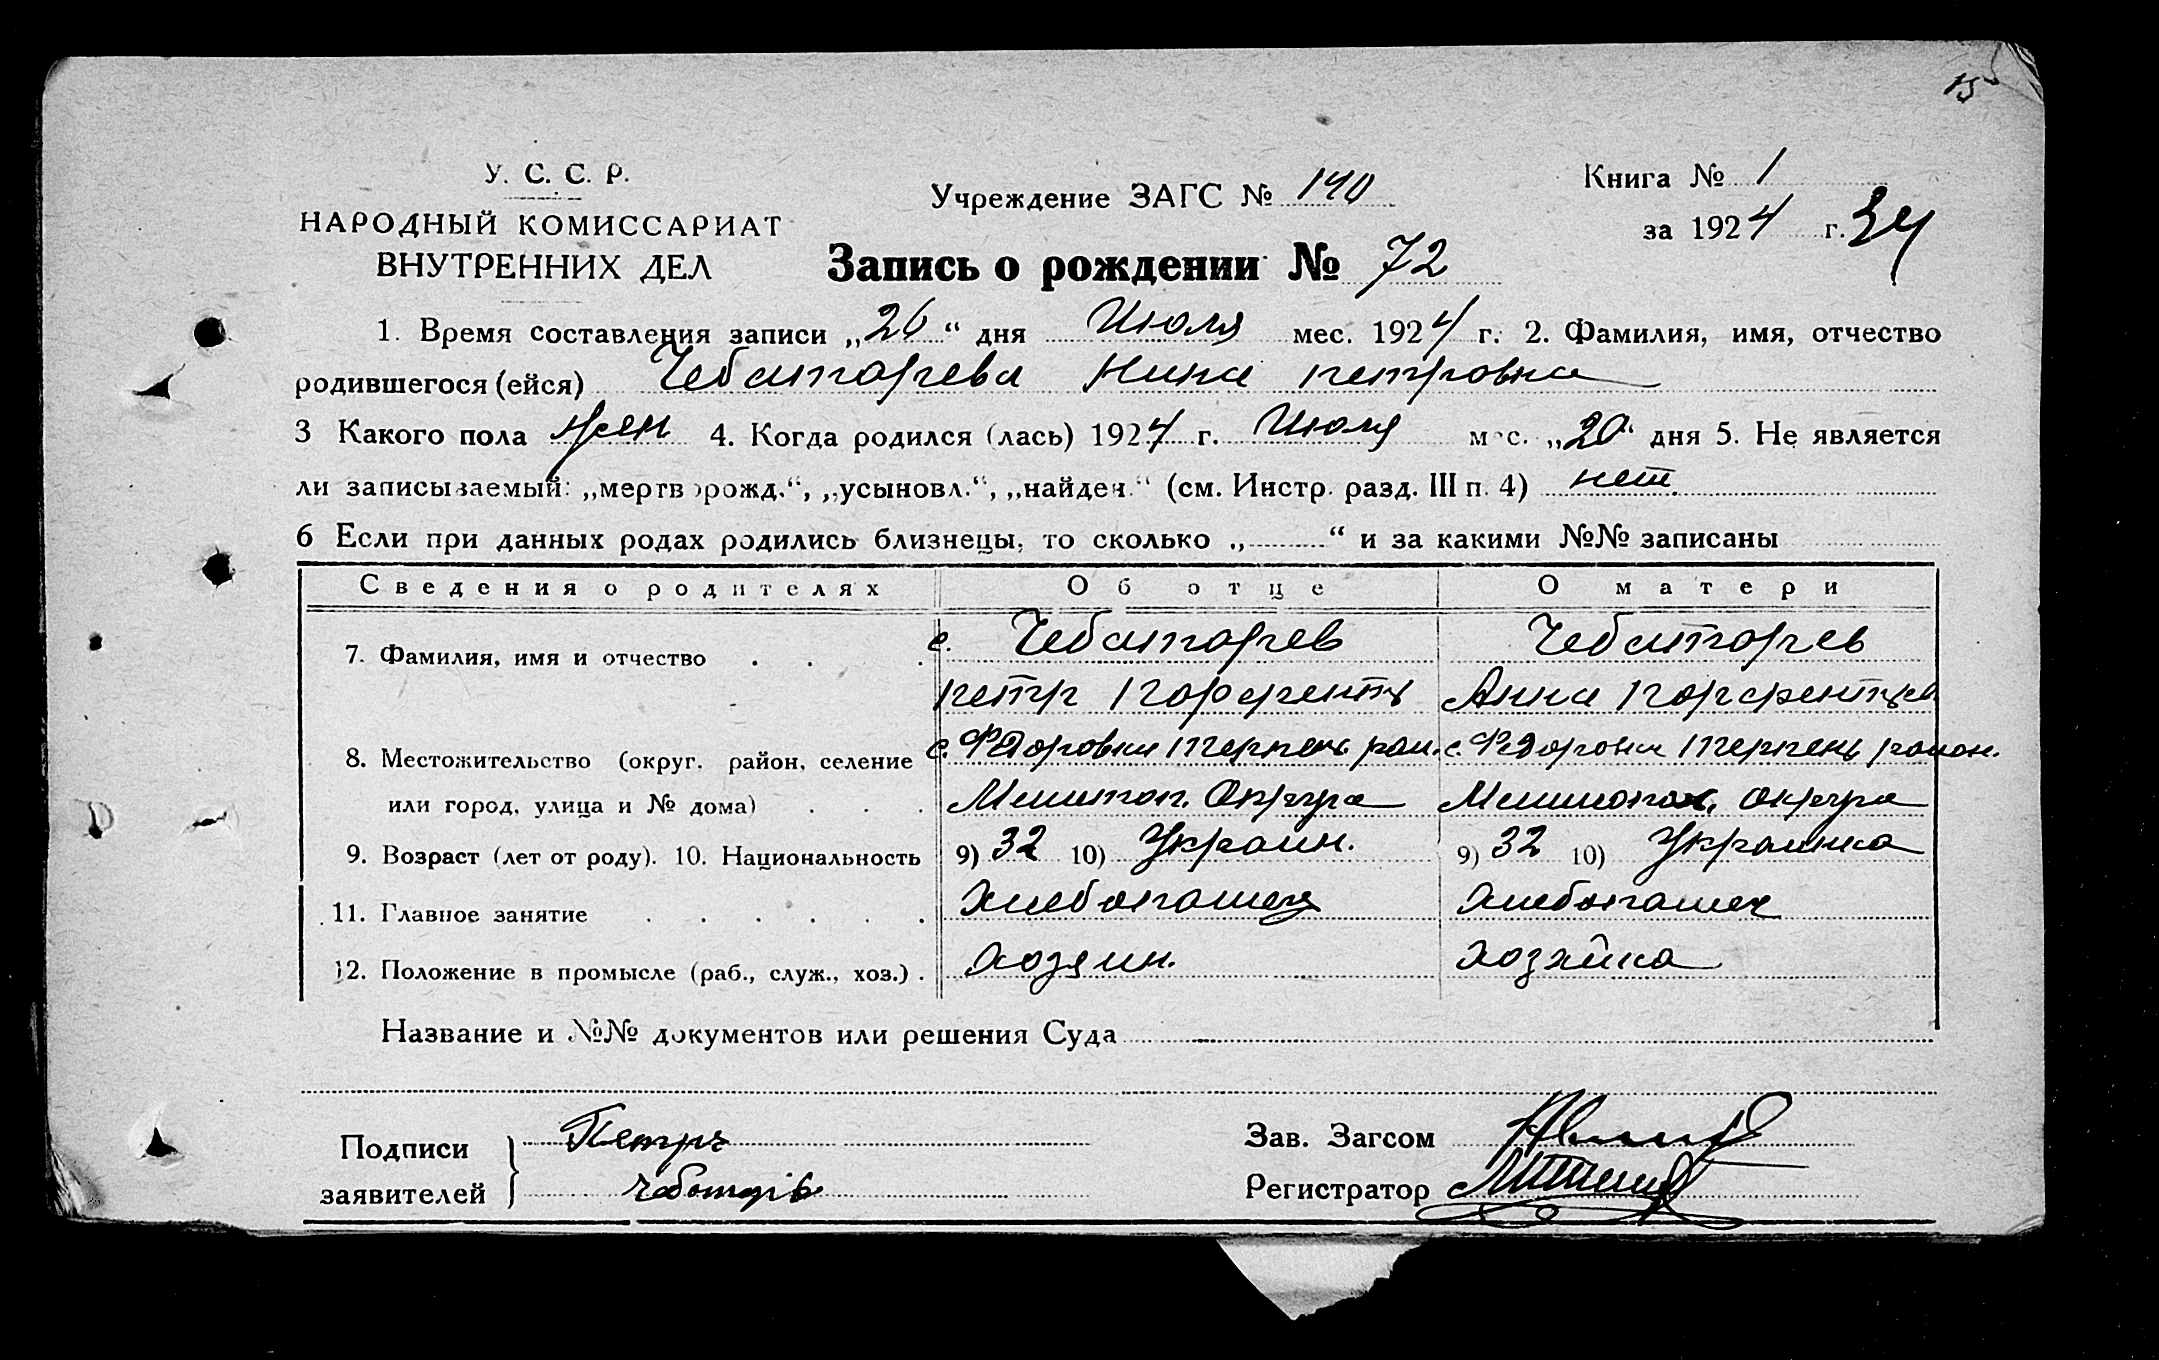 15
У. С. С. Р.
НАРОДНЫЙ КОМИССАРИАТ
ВНУТРЕННИХ ДЕЛ
Учреждение ЗАГС № 140
Книга № 1
за 1924 г. 34
Запись о рождении № 72
1. Время составления записи „26“ дня Июля мес. 1924 г. 2. Фамилия, имя, отчество
родившегося (ейся) Чеботарева Нина петровна
3 Какого пола жен 4. Когда родился (лась) 1924 г. Июля мес. „20“ дня 5. Не является
ли записываемый: „мертворожд.“, „усыновл.“, „найден.“ (см. Инстр. разд. III п. 4) нет.
6 Если при данных родах родились близнецы, то сколько „ “ и за какими №№ записаны
Сведения о родителях Об отце О матери
7. Фамилия, имя и отчество с. Чеботарев Чеботарев
петр Анна
8. Местожительство (округ, район, селение с. Федоровка Терпень с. Федоровка Терпень район.
или город, улица и № дома) Мелитоп. Округа Мелитопол. округа
9. Возраст (лет от роду). 10. Национальность 9) 32 10) Украин. 9) 32 10) Украинка
11. Главное занятие Хлебопашец Хлебопашец
12. Положение в промысле (раб., служ., хоз.) . хозяин. хозяйка
Название и №№ документов или решения Суда
Подписи Петр
заявителей
Зав. Загсом
Регистратор